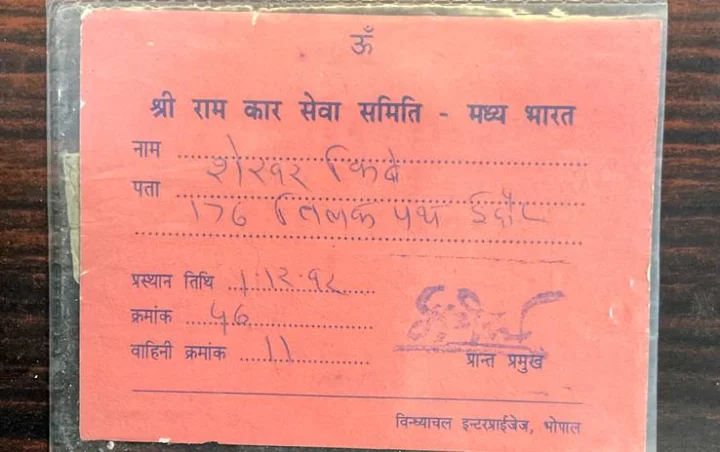 ॐ
श्री राम कार सेवा समिति - मध्य भारत
नाम शेखर किबे
पता १७६ तिलक पथ इंदौर
प्रस्थान तिथि १.१२.९२
क्रमांक ५६
वाहिनी क्रमांक 11
प्रान्त प्रमुख
विन्ध्याचल इन्टरप्राईजेज, भोपाल